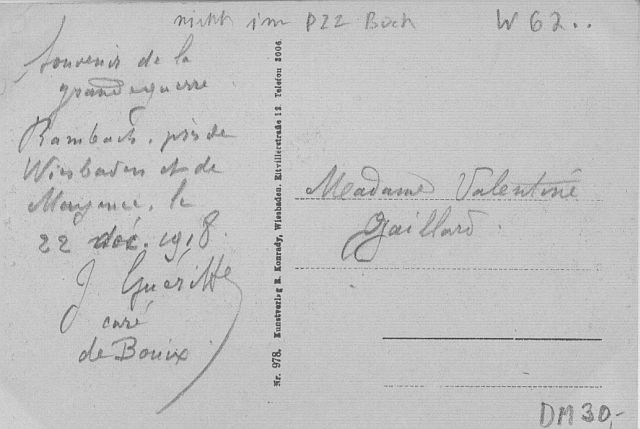 nicht im PZZ Buch W 62..
Souvenir de la
grande guerre
Rambach, près de
Wiesbaden et de
Mayence, le
22 déc. 1918.
J Gueritte
curé
de Bouix
Nr. 978. Kunstverlag R. Konrady, Wiesbaden, Eltvillerstraße 12. Telefon 2006.
Madame Valentine
Gaillard.
DM 30,-